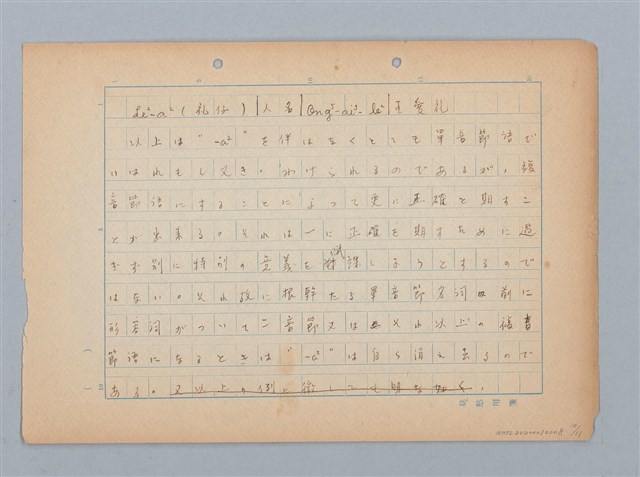 lé-á（礼仔）｜人名｜Ông-ài-lé｜王愛礼
以上は“-a²”を伴はなくとも單音節語で
いはれもし又き、わけられるのであるが、複
音節語にすることによって更に正確と期すこ
とが出来る。それは一に正確を期すために過
ぎず別に特別の意義を附課しようとするので
はない。それ故に根幹たる單音節名詞の前に
形容詞がついて二音節又はそれ以上の複音
節語になるときは“-a²”は自ら消え去るので
ある。又以上の例に徴しても明な如く、